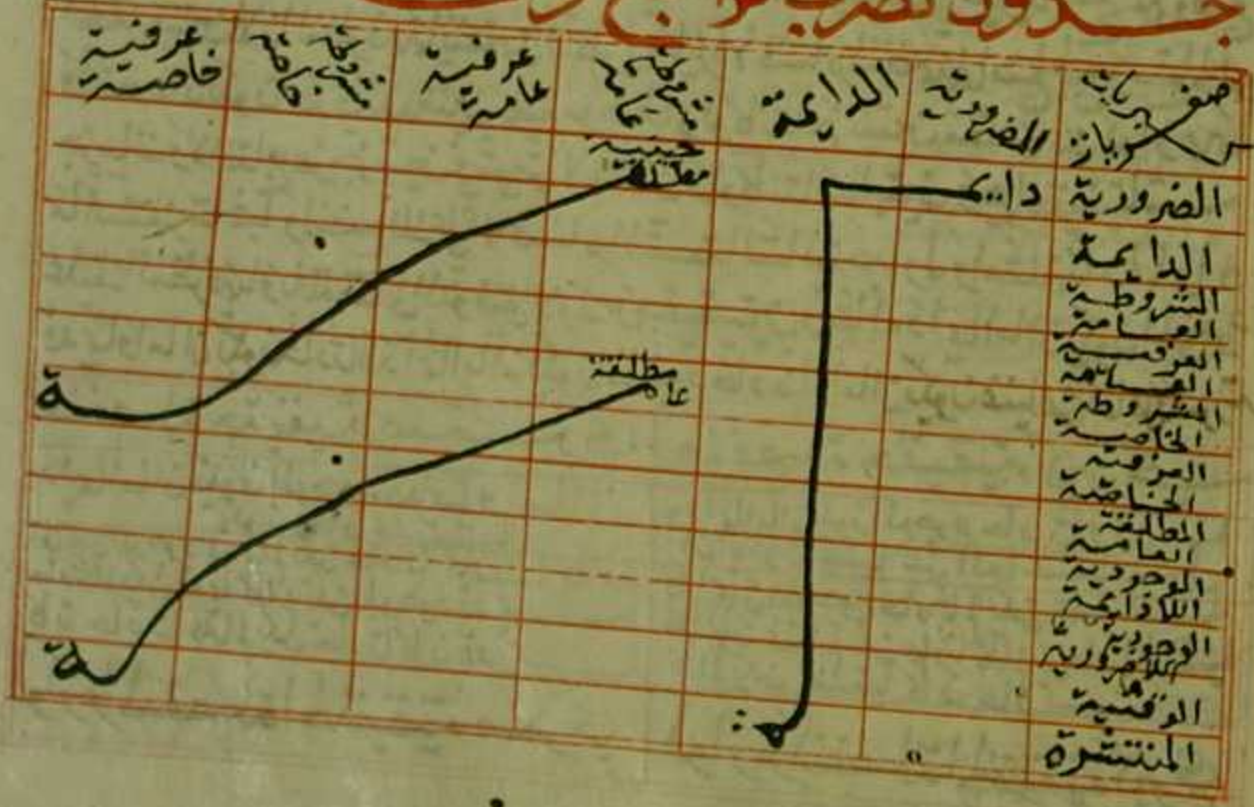 جدول ضرب
صغريات الضرورية الدايمة مشروطة عامة عرفية عامة مشروطة خاصة عرفية خاصية
كبريات
الضرورية دايمـ ـة حينية مطلقة ـة
الدايمة
المشروطة العامة
العرفية العامة
المشروطة الخاصية مطلقة عامـ ـة
العرفية الخاصية
المطلقة العامة
الوجودية اللادايمة
الوجودية اللاضرورية
الوقتية
المنتشرة